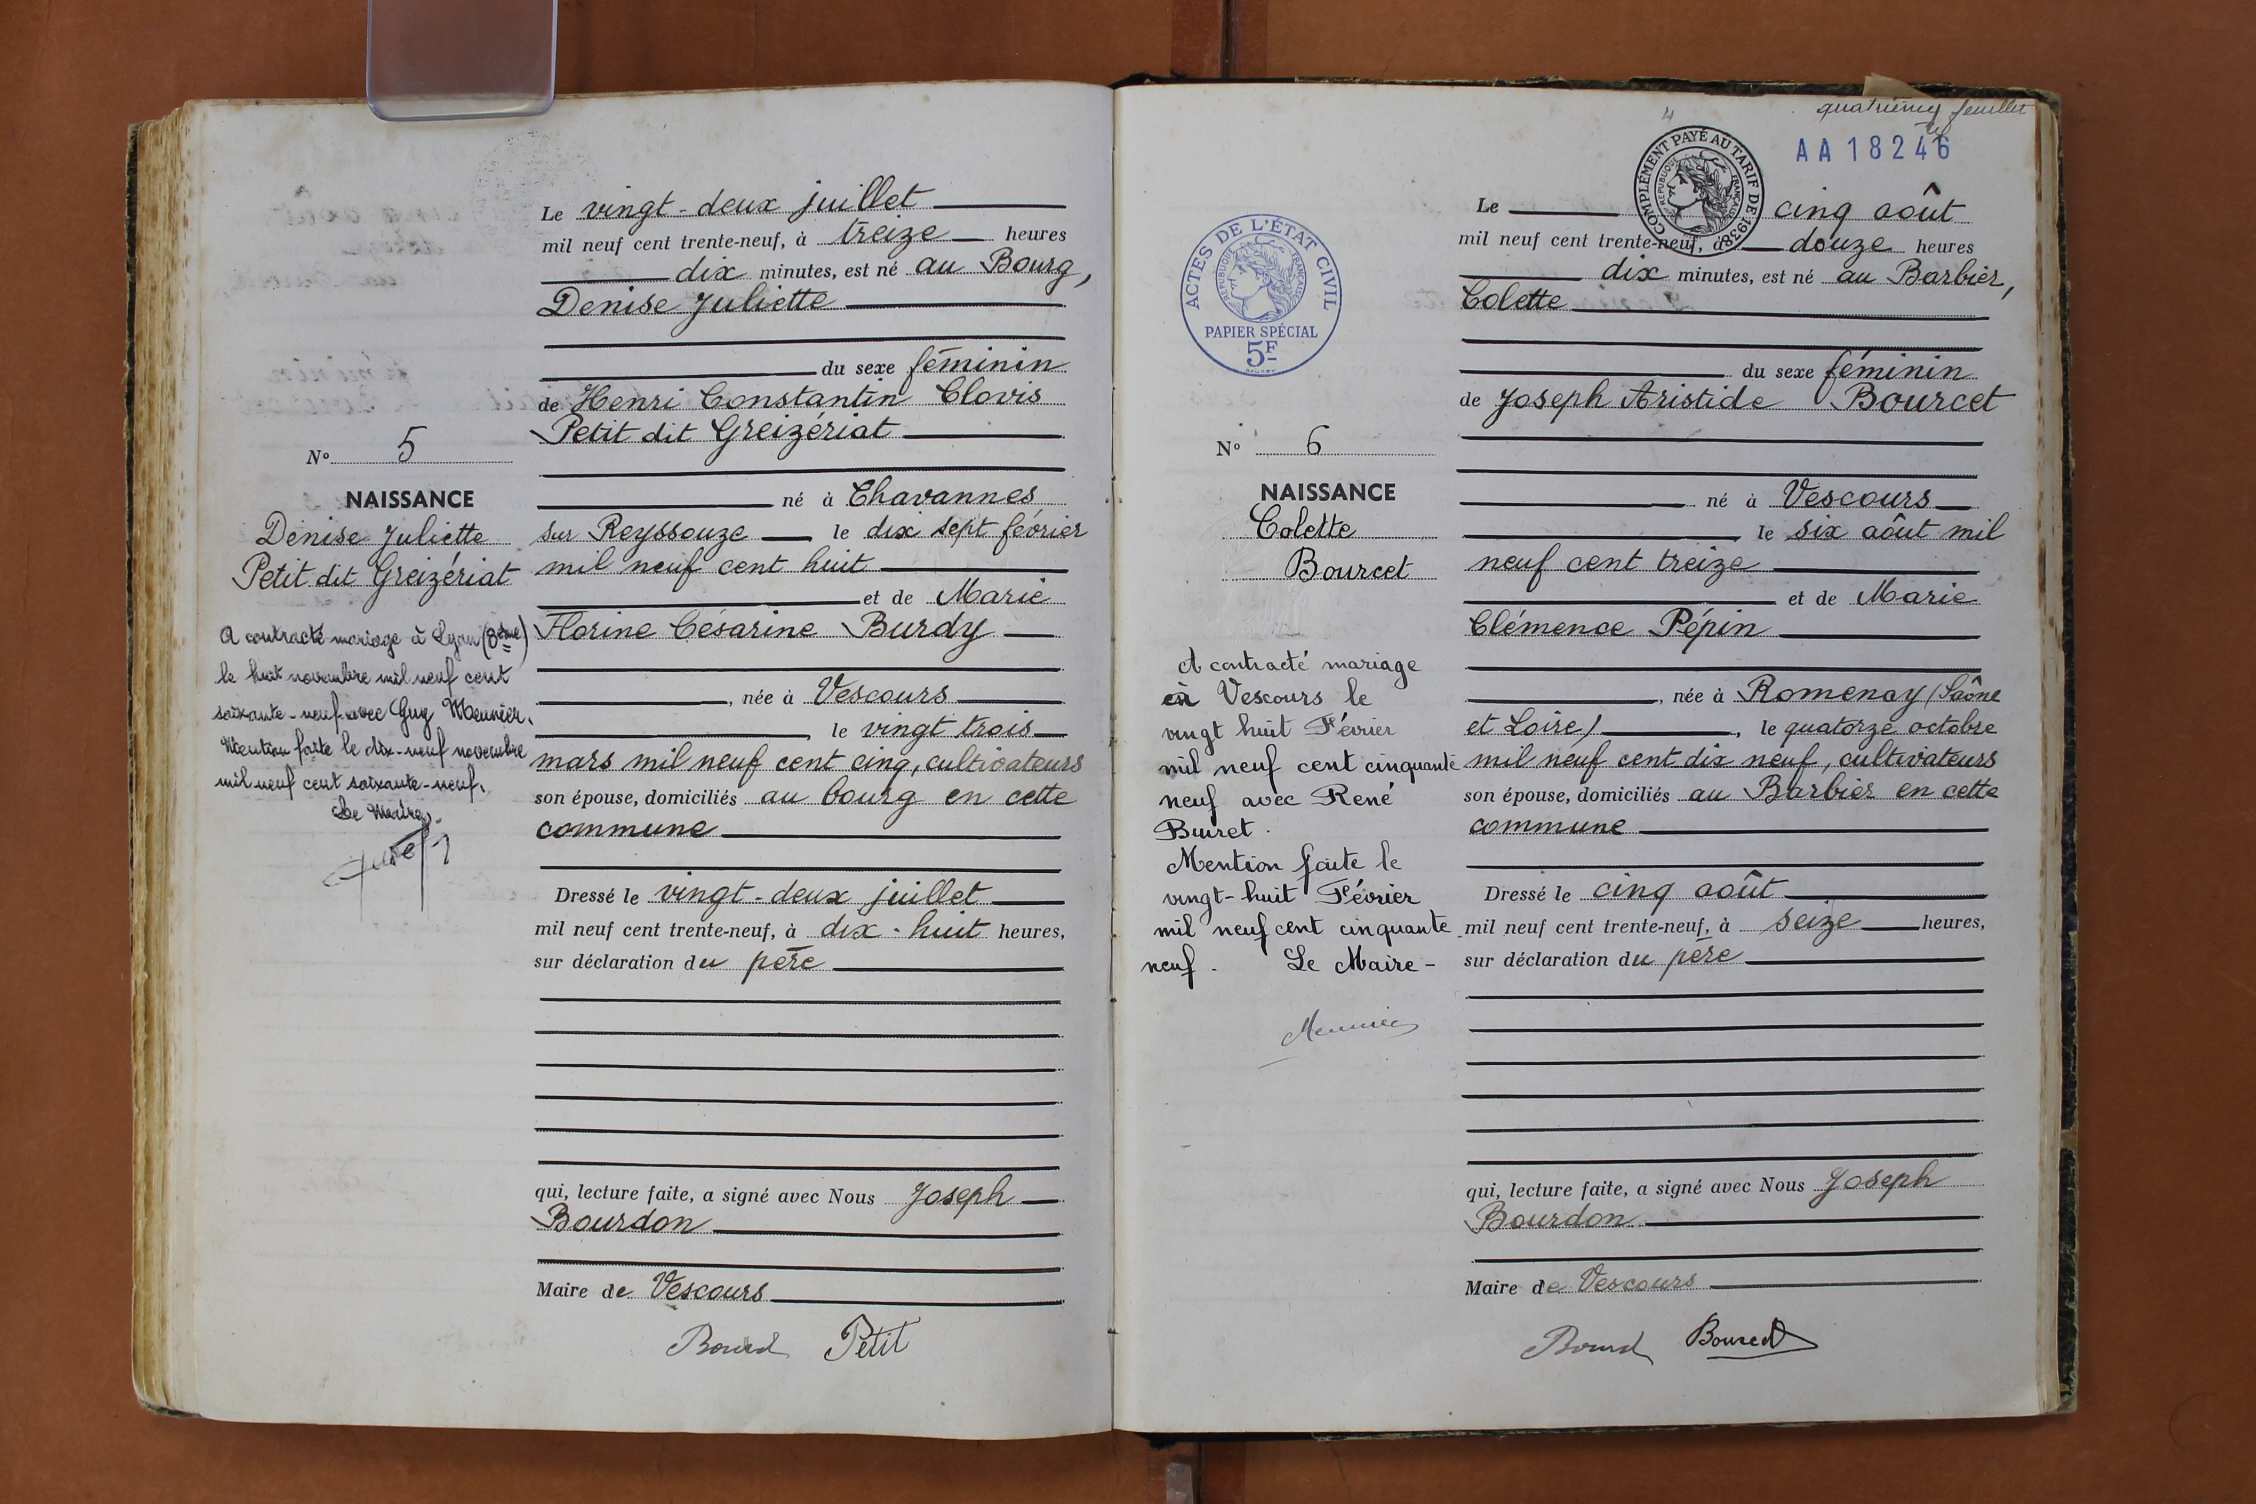 Le vingt-deux juillet
mil neuf cent trente-neuf, à treize heures
dix minutes, est né au Bourg,
Denise Juliette
du sexe féminin
de Henri Constantin Clovis
Petit dit Greizériat
né à Chavannes
sur Reyssouze le dix sept février
mil neuf cent huit
et de Marie
Florine Césarine Burdy
, née à Vescours
, le vingt trois
mars mil neuf cent cinq, cultivateurs
son épouse, domiciliés au bourg en cette
commune
Dressé le vingt-deux juillet
mil neuf cent trente-neuf, à dix-huit heures,
sur déclaration du père
qui, lecture faite, a signé avec Nous Joseph
Bourdon
Maire de Vescours
Petit
No 5
NAISSANCE
Denise Juliette
Petit dit Greizériat
A contracté mariage à Lyon (8ème)
le huit novembre mil neuf cent
soixante-neuf avec Guy Meunier.
Mention faite le dix-neuf novembre
mil neuf cent soixante-neuf.
Le Maire.
4
quatrième feuillet
AA18246
COMPLÉMENT PAYÉ AU TARIF DE 1938
RÉPUBLIQUE FRANÇAISE
Le cinq août
mil neuf cent trente-neuf, à douze heures
dix minutes, est né au Barbier,
Colette
du sexe féminin
de Joseph Aristide Bourcet
né à Vescours
le six août mil
neuf cent treize
et de Marie
Clémence Pépin
, née à Romenay (Saône
et Loire) , le quatorze octobre
mil neuf cent dix neuf, cultivateurs
son épouse, domiciliés au Barbier en cette
commune
Dressé le cinq août
mil neuf cent trente-neuf, à seize heures,
sur déclaration du père
qui, lecture faite, a signé avec Nous Joseph
Bourdon
Maire de Vescours
Bourcet
ACTES DE L'ÉTAT CIVIL
RÉPUBLIQUE FRANÇAISE
PAPIER SPÉCIAL
5F
No 6
NAISSANCE
Colette
Bourcet
A contracté mariage
à Vescours le
vingt huit Février
mil neuf cent cinquante
neuf avec René
Buiret.
Mention faite le
vingt-huit Février
mil neuf cent cinquante
neuf. Le Maire -
Meunier